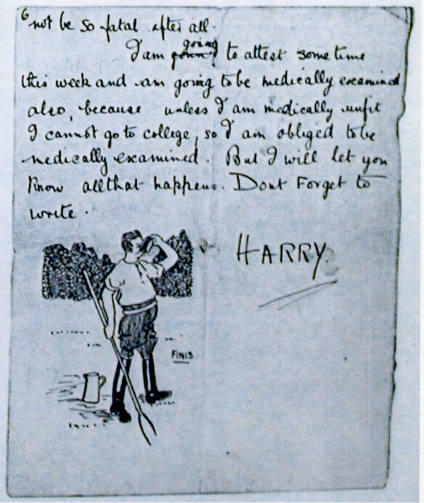 6
not be so fatal after all.
I am going to attest some time
this week and am going to be medically examined
also, because unless I am medically unfit
I cannot go to college, so I am obliged to be
medically examined. But I will let you
know all that happens. Dont Forget to
write.
HARRY
FINIS